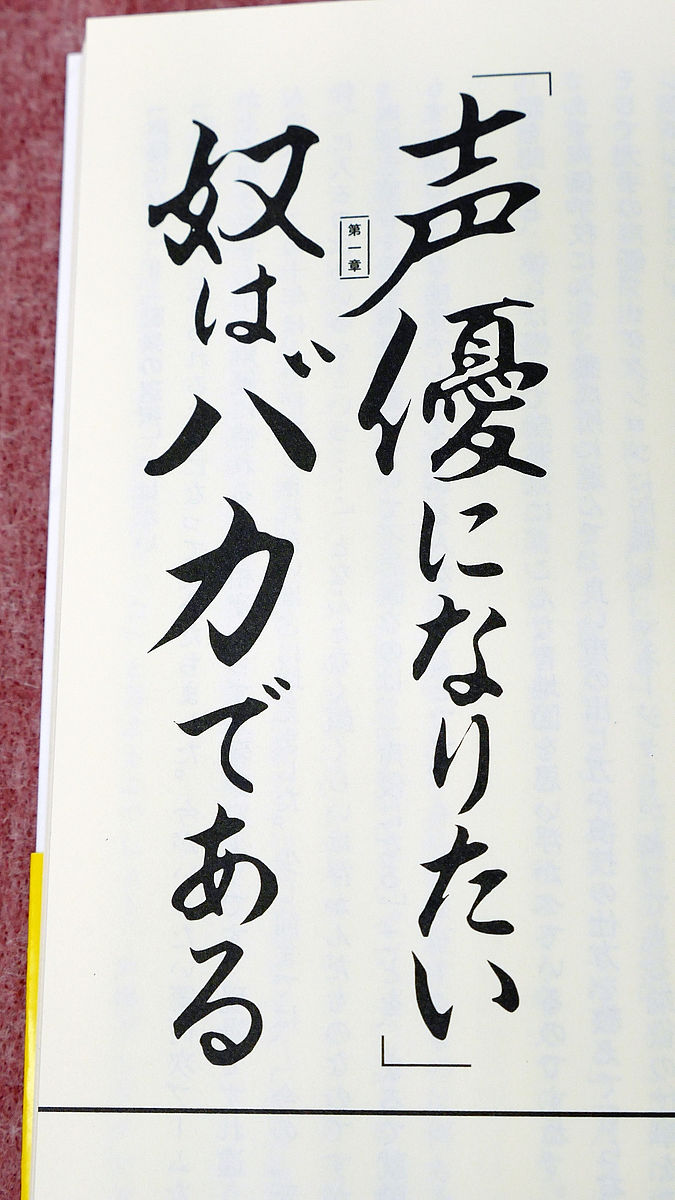 「声優になりたい」
第一章
奴はバカである